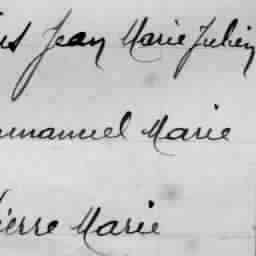 Jean Marie Julien
Emmanuel Marie
Pierre Marie